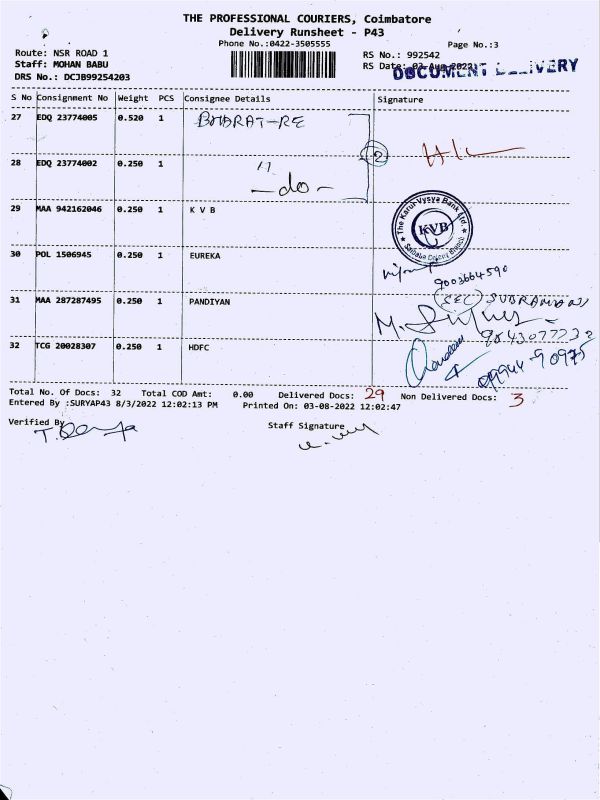 THE PROFESSIONAL COURIERS, Coimbatore
Delivery Runsheet - P43
Phone No.:0422-3505555
Page No.:3
Route: NSR ROAD 1
RS No.: 992542
Staff: MOHAN BABU
RS Date: 03-Aug-2022
DOCUMENT DELIVERY
DRS No.: DCJB99254203
S No Consignment No Weight PCS Consignee Details Signature
27 EDQ 23774005 0.520 1 BHARAT-RE
28 EDQ 23774002 0.250 1 " -do-
2
29 MAA 942162046 0.250 1 K V B
The Karur Vysya Bank Ltd.
KVB
Saibaba Colony Branch
30 POL 1506945 0.250 1 EUREKA
9003664590
31 MAA 287287495 0.250 1 PANDIYAN
(SEC) SUBRAMANI
9843077232
32 TCG 20028307 0.250 1 HDFC
09944-90975
Total No. Of Docs: 32 Total COD Amt: 0.00 Delivered Docs: 29 Non Delivered Docs: 3
Entered By :SURYAP43 8/3/2022 12:02:13 PM Printed On: 03-08-2022 12:02:47
Verified By
Staff Signature